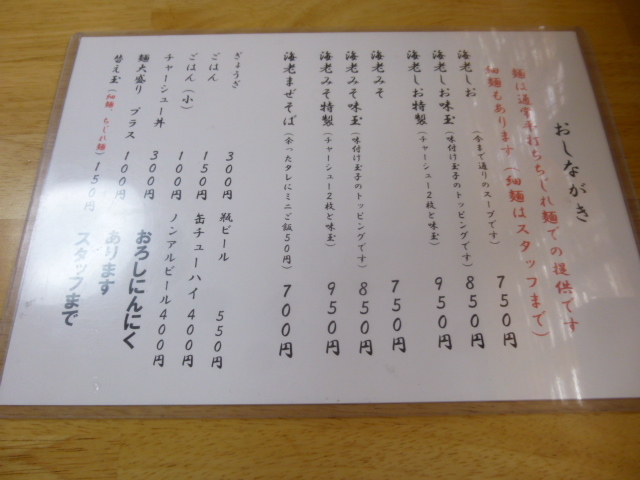 おしながき
麺は通常平打ちちぢれ麺での提供です
細麺もあります（細麺はスタッフまで）
海老しお（今まで通りのスープです） 750円
海老しお味玉（味付け玉子のトッピングです） 850円
海老しお特製（チャーシュー2枚と味玉） 950円
海老みそ 750円
海老みそ味玉（味付け玉子のトッピングです） 850円
海老みそ特製（チャーシュー2枚と味玉） 950円
海老まぜそば（余ったタレにミニご飯50円） 700円
ぎょうざ 300円 瓶ビール 550円
ごはん 150円 缶チューハイ 400円
ごはん（小） 100円 ノンアルビール 400円
チャーシュー丼 300円
麺大盛り プラス 100円
替え玉（細麺、ちぢれ麺）150円
おろしにんにく
あります
スタッフまで